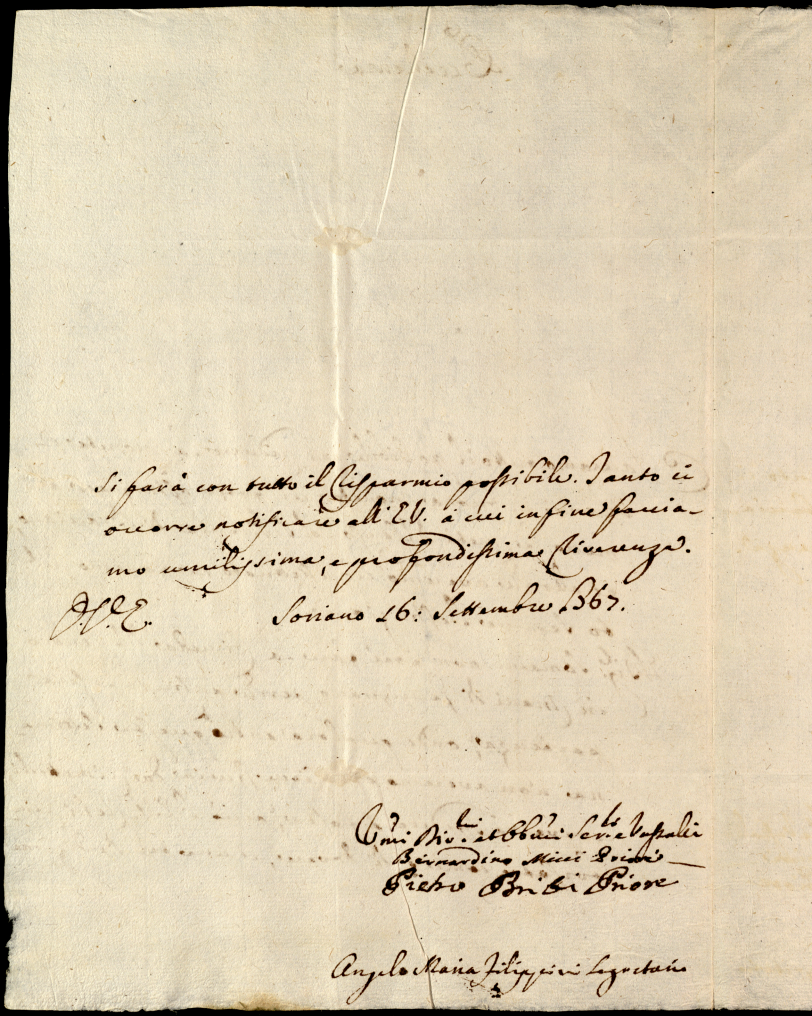 si farà con tutto il risparmio possibile. Tanto ci
occorre notificare all' EV. à cui in fine faccia-
mo umilissima, e profondissima riverenza.
D.V.E. Soriano 16: Settembre 1767.
Umi Div.mi et Obbmi Ser.ri e Vassalli
Bernardino Micci Priore
Pietro Priore
Angelo Maria Filippini Segretario